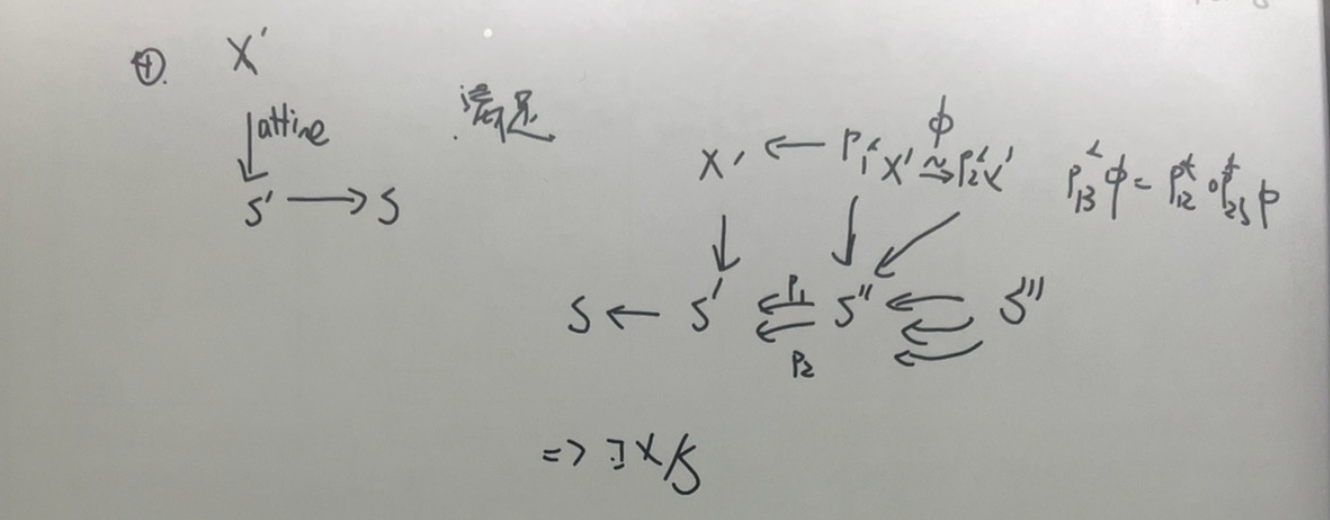 ④. X′
↓affine
S′ → S
满足
X′ ← P₁*X′ ≅ P₂*X′
ϕ
P₁₃*ϕ = P₁₂* ∘ P₂₃*ϕ
S ← S′ ⇇ S″ ← S‴
P₁
P₂
⇒ ∃ X/S